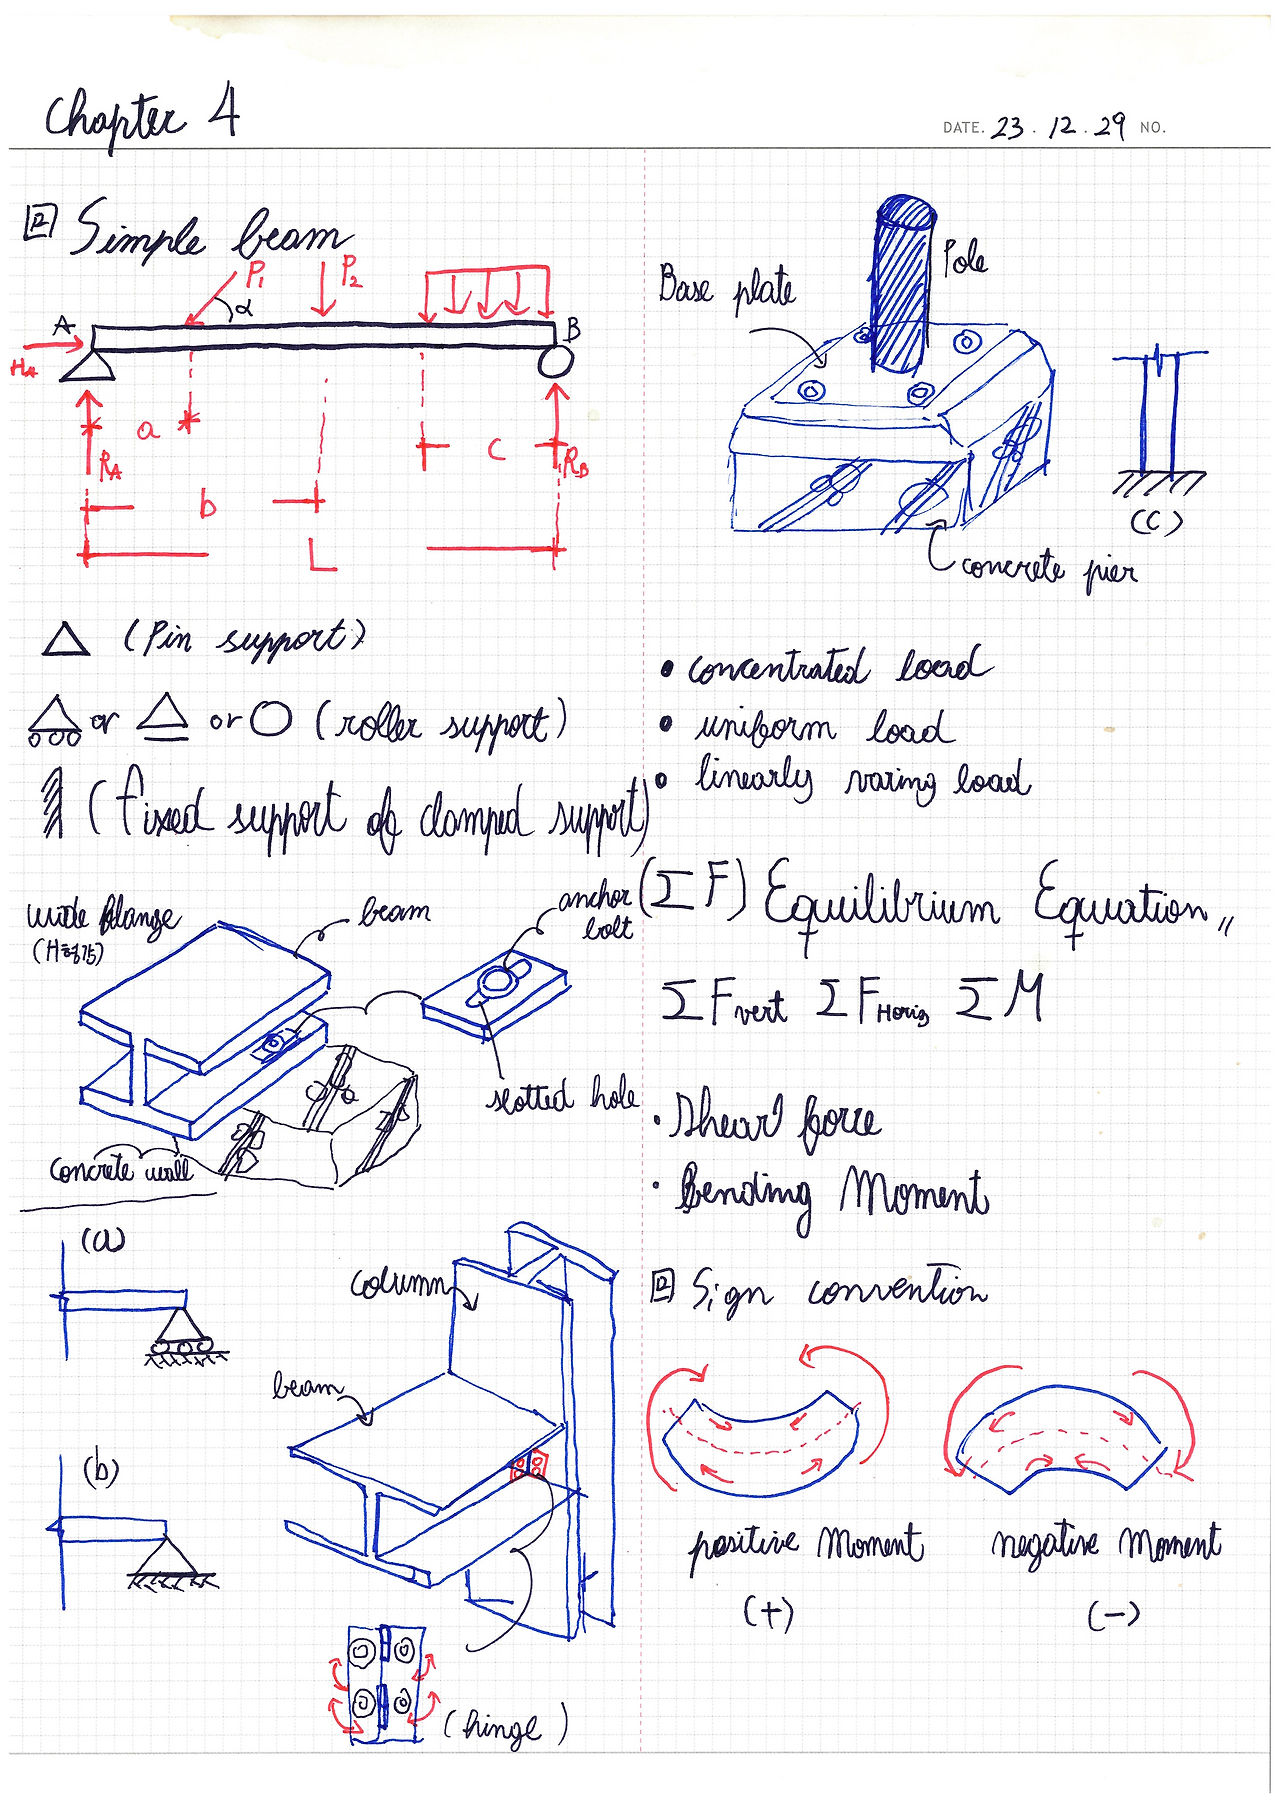 Chapter 4
DATE. 23 . 12 . 29 NO.
Simple beam
P₁
P₂
α
A
B
H_A
a
c
R_A
R_B
b
L
(Pin support)
or or (roller support)
(fixed support of clamped support)
wide flange
(H형강)
beam
anchor
bolt
slotted hole
concrete wall
(a)
column
beam
(b)
(hinge)
Base plate
Pole
(C)
concrete pier
• concentrated load
• uniform load
• linearly varing load
(ΣF) Equilibrium Equation,,
ΣF vert ΣF Horiz ΣM
· Shear force
· Bending Moment
Sign convention
positive Moment
(+)
negative Moment
(−)